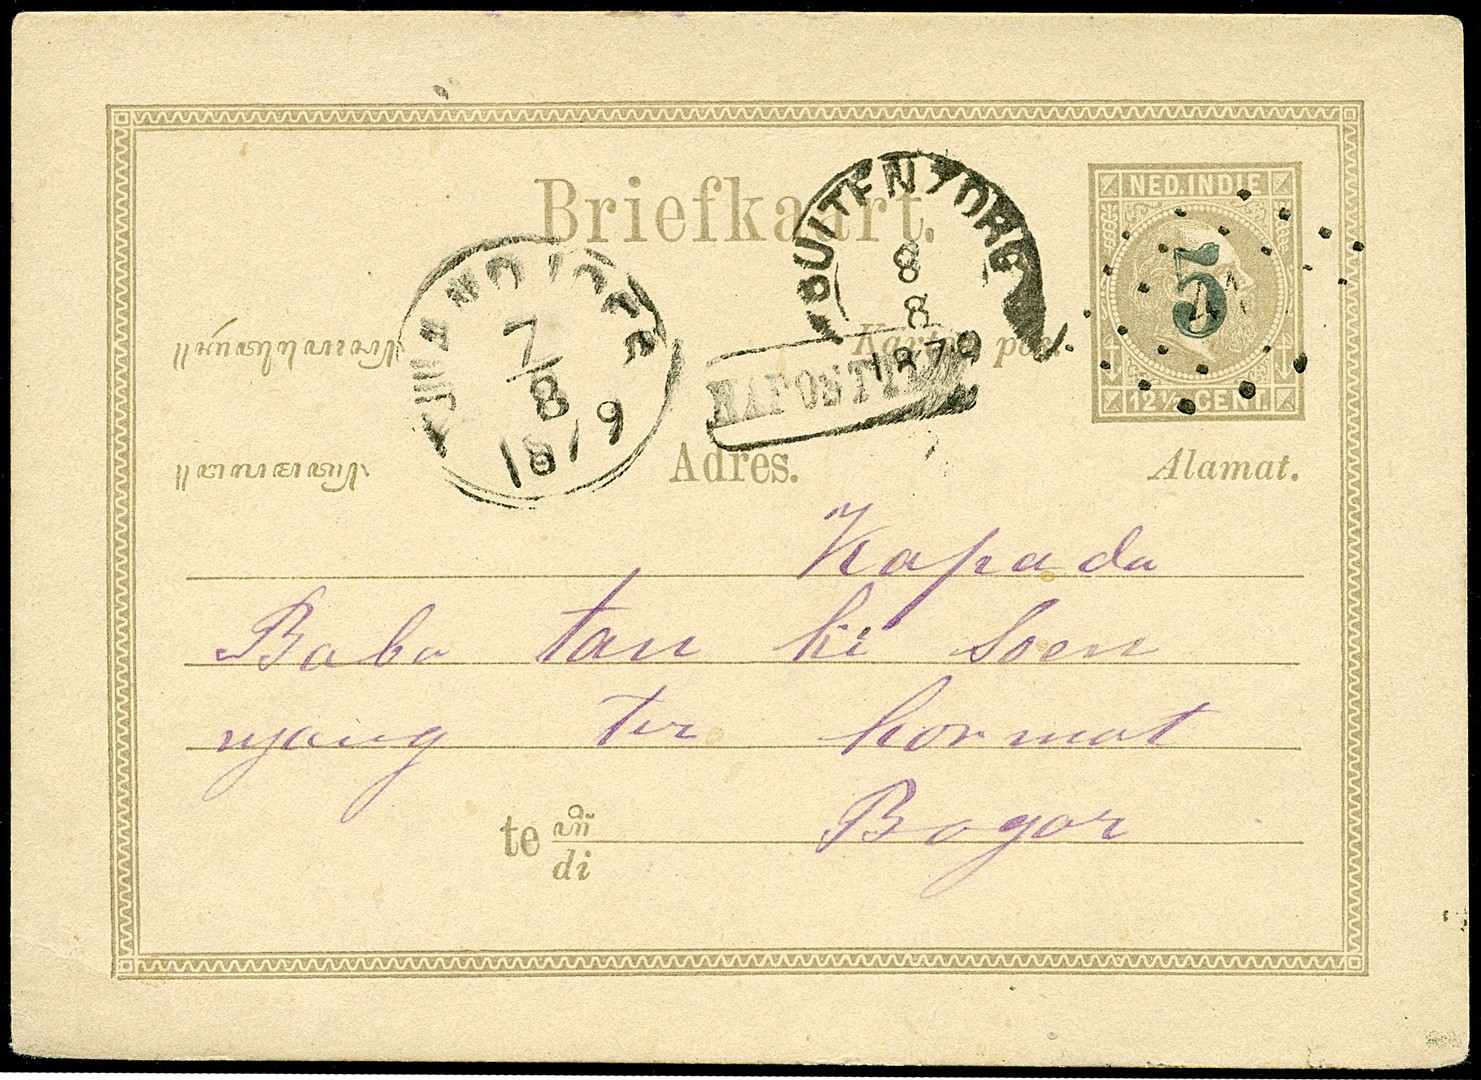 Briefkaart.
NED. INDIE
5
12½ CENT
BUITENZORG
8
8
1879
TJIANDJOER
7
8
1879
NAPOSTTIJD
Adres.
Alamat.
Kapada
Baba tan ki Soen
njang ter hormat
te di Bogor